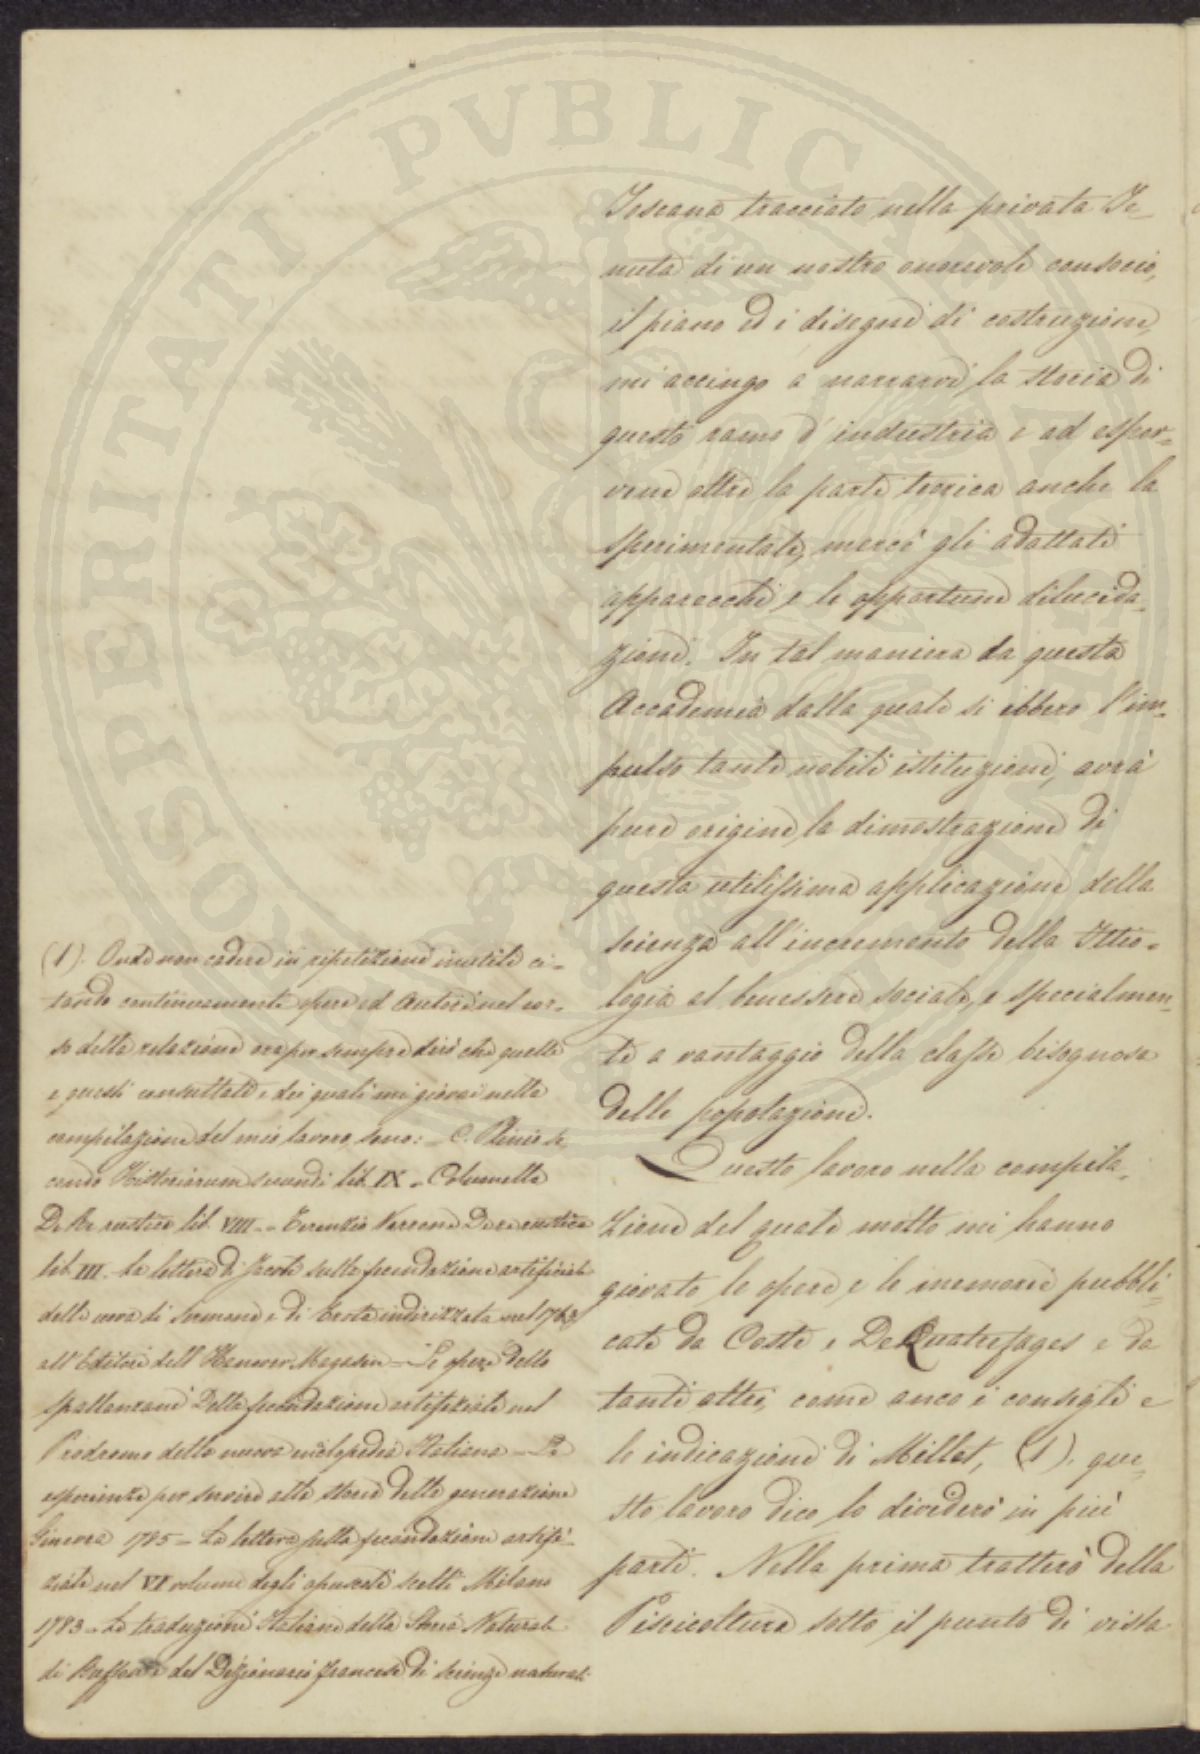 Toscana tracciato nella privata Te-
nuta di un nostro onorevole consocio,
il piano ed i disegni di costruzione,
mi accingo a narrarvi la storia di
questo ramo d'industria e ad espor-
vene oltre la parte teorica anche la
sperimentale, mercè gli adattati
apparecchi e le opportune dilucida-
zioni. In tal maniera da questa
Accademia dalla quale si ebbero l'im-
pulso tante nobili istituzioni, avrà
pure origine la dimostrazione di
questa utilissima applicazione della
scienza all'incremento della Ittio-
logia al benessere sociale, e specialmen-
te a vantaggio della classe bisognosa
delle popolazioni.
Questo lavoro nella compila-
zione del quale molto mi hanno
giovato le opere e le memorie pubbli-
cate da Coste e De Quatrefages e da
tanti altri, come anco i consigli e
le indicazioni di Millet, (1). que-
sto lavoro dico lo dividerò in più
parti. Nella prima tratterò della
Piscicoltura sotto il punto di vista
(1). Onde non cadere in ripetizioni inutili ci-
tando continuamente opere ed Autori nel cor-
so della relazione ora per sempre dirò che quelle
e questi consultati e dei quali mi giovai nella
compilazione del mio lavoro, sono: - C. Plinio Se-
condo Historiarum mundi lib. IX - Columella
De Re rustica lib. VIII - Terenzio Varrone De re rustica
lib. III. - La lettera di Jacobi sulla fecondazione artificiale
delle uova di Sermone e di Trota indirizzata nel 1763
all'Editore dell'Hanover Magasin - Le opere dello
Spallanzani Della fecondazione artifiziale nel
Prodromo della nuova enciclopedia Italiana - Le
esperienze per servire alla storia della generazione
Ginevra 1785 - La lettera sulla fecondazione artifi-
ziale nel VI volume degli opuscoli scelti Milano
1783 - La traduzione Italiana della Storia Naturale
di Buffon e del Dizionario francese di scienze naturali
PVBLICAE
PROSPERITATI